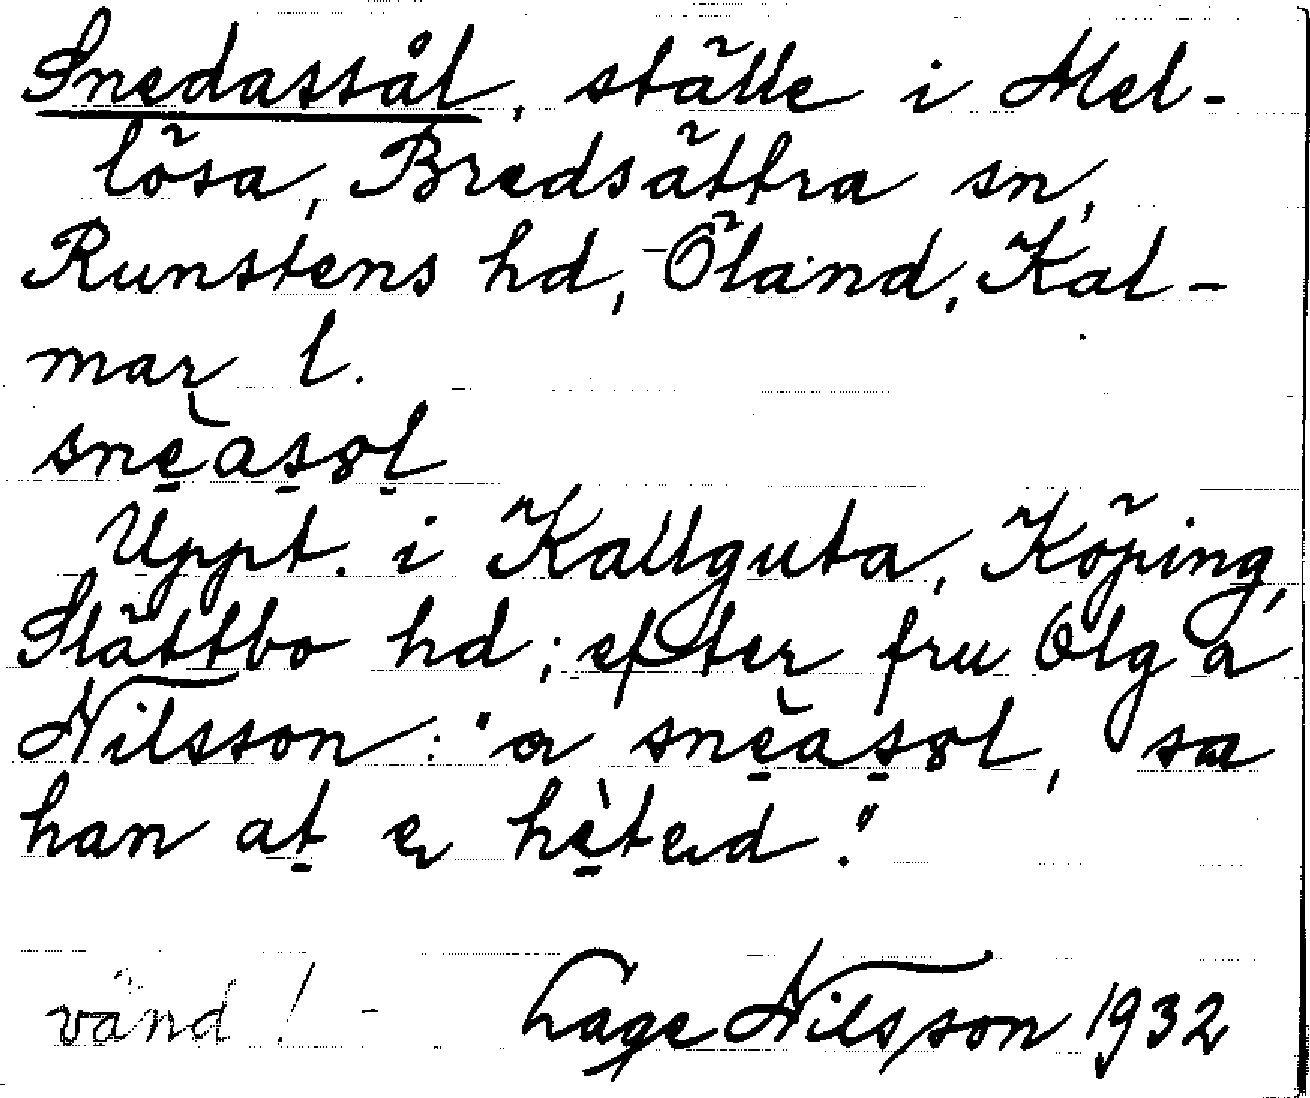 Snedasstål, ställe i Mel-
lösa, Bredsättra sn,
Runstens hd, Öland, Kal-
mar l.
Uppt. i Kallguta, Köping,
Slättbo hd; efter fru Olga
Nilsson: "a snęasol, sa
han at hętəd."
vänd! Lage Nilsson 1932